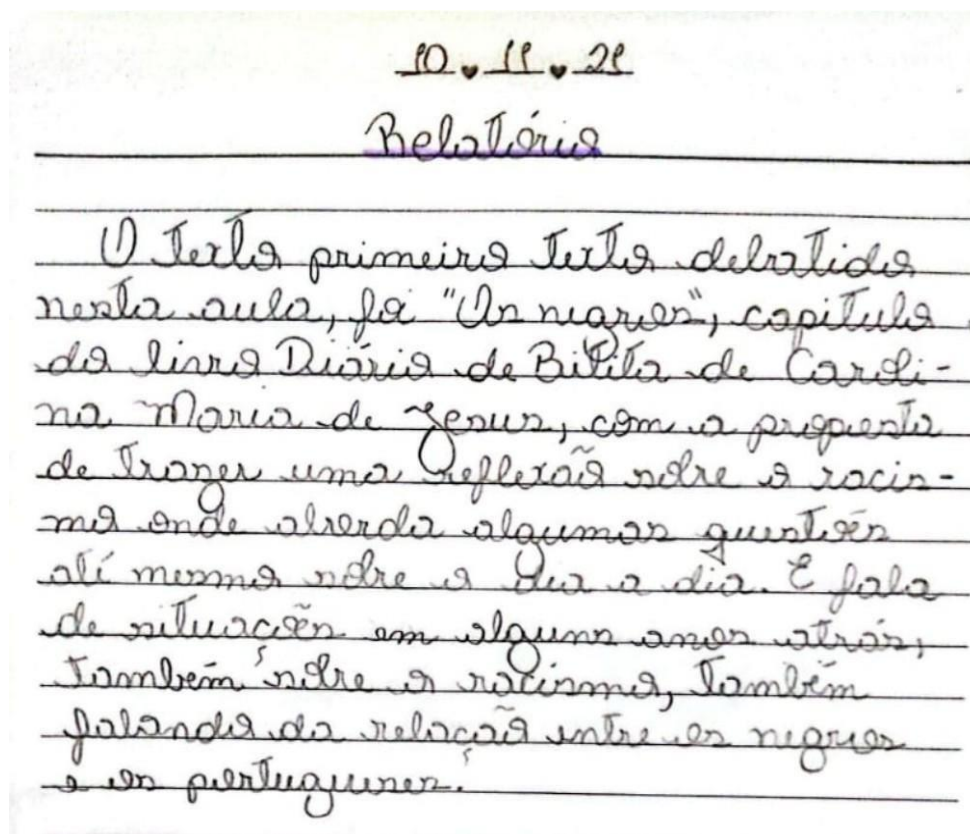 10.11.21
Relatório
O texto primeiro texto debatido
nesta aula, foi "Os negros", capítulo
do livro Diário de Bitita de Caroli-
na Maria de Jesus, com a proposta
de trazer uma reflexão sobre o racis-
mo onde aborda algumas questões
até mesmo sobre o dia a dia. E fala
de situações em alguns anos atrás,
também sobre o racismo, também
falando da relação entre os negros
e os portugueses.